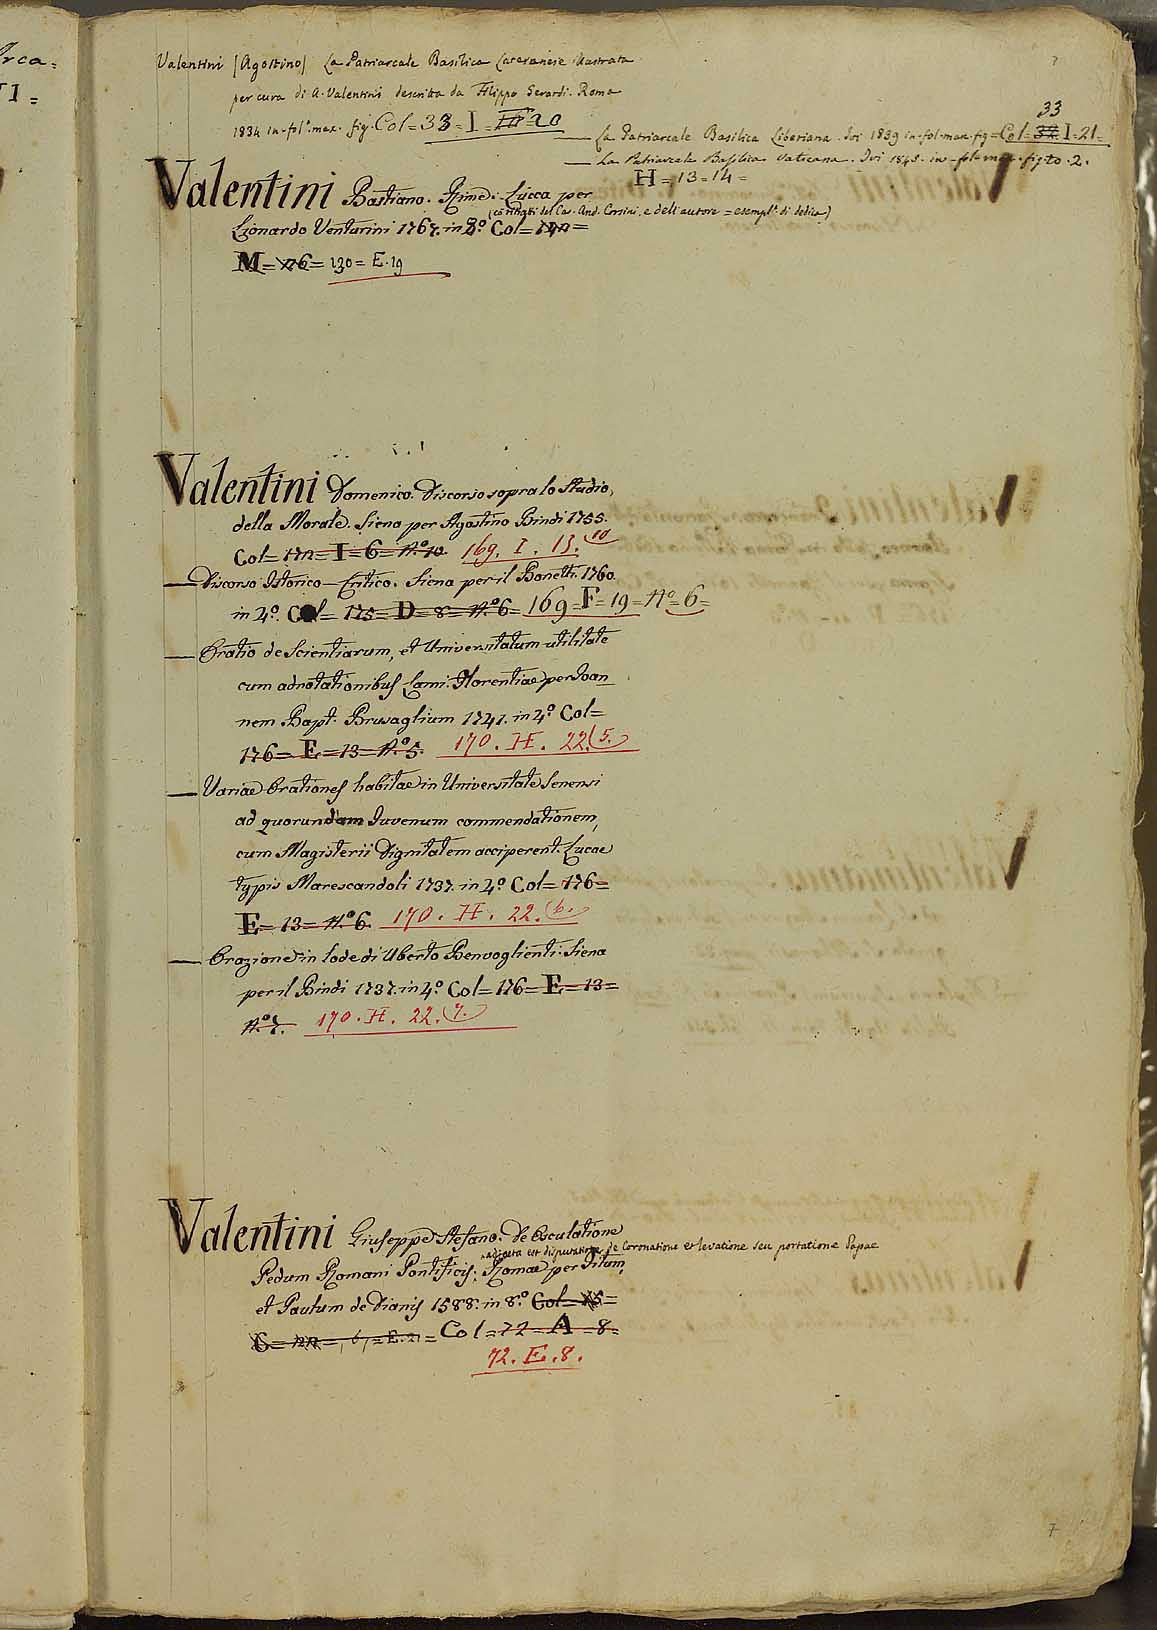 Valentini (Agostino) La Patriarcale Basilica Lateranense illustrata
per cura di A. Valentini descritta da Filippo Gerardi. Roma
1834 in-fol.º max. fig. Col = 33 = I = 20
33
— La Patriarcale Basilica Liberiana. Ivi 1839 in-fol-max-fig = Col = I = 21 =
— La Patriarcale Basilica Vaticana. Ivi 1845. in-fol-max-fig to. 2.
H = 13 = 14 =
Valentini Bastiano. Rime. Lucca per
(co ritratti del Cav. And. Corsini, e dell'autore = esempl.e di dedica)
Lionardo Venturini 1767. in 8º Col =
M = 130 = E. 19
Valentini Domenico. Discorso sopra lo Studio
della Morale. Siena per Agostino Bindi 1755.
Col = 172 = I = 6 = Nº 10. 169. I. 13. 10
— Discorso Istorico-Critico. Siena per il Bonetti 1760.
in 4º. Col = 175 = D = 8 = Nº 6 = 169 = F = 19 = Nº = 6 =
— Oratio de Scientiarum, et Universitatum utilitate
cum adnotationibus Lami. Florentiae per Joan
nem Bapt. Brusaglium 1741. in 4º Col =
176 = E = 13 = Nº 5. 170. H. 22. (5.)
— Variae Orationes habitae in Universitate Senensi
ad quorundam Juvenum commendationem,
cum Magisterii Dignitatem acciperent. Lucae
typis Marescandoli 1737. in 4º Col = 176 =
E = 13 = Nº 6. 170. H. 22. (6.)
— Orazione in lode di Uberto Benvoglienti. Siena
per il Bindi 1737. in 4º Col = 176 = E = 13 =
Nº 7. 170. H. 22. (7.)
Valentini Giuseppe Stefano. De Osculatione
adjecta est disputatio de Coronatione et levatione seu portatione Papae
Pedum Romani Pontificis. Romae per Titum,
et Paulum de Dianis 1588. in 8º Col =
Col = 72 = A = 8 =
72. E. 8.
7